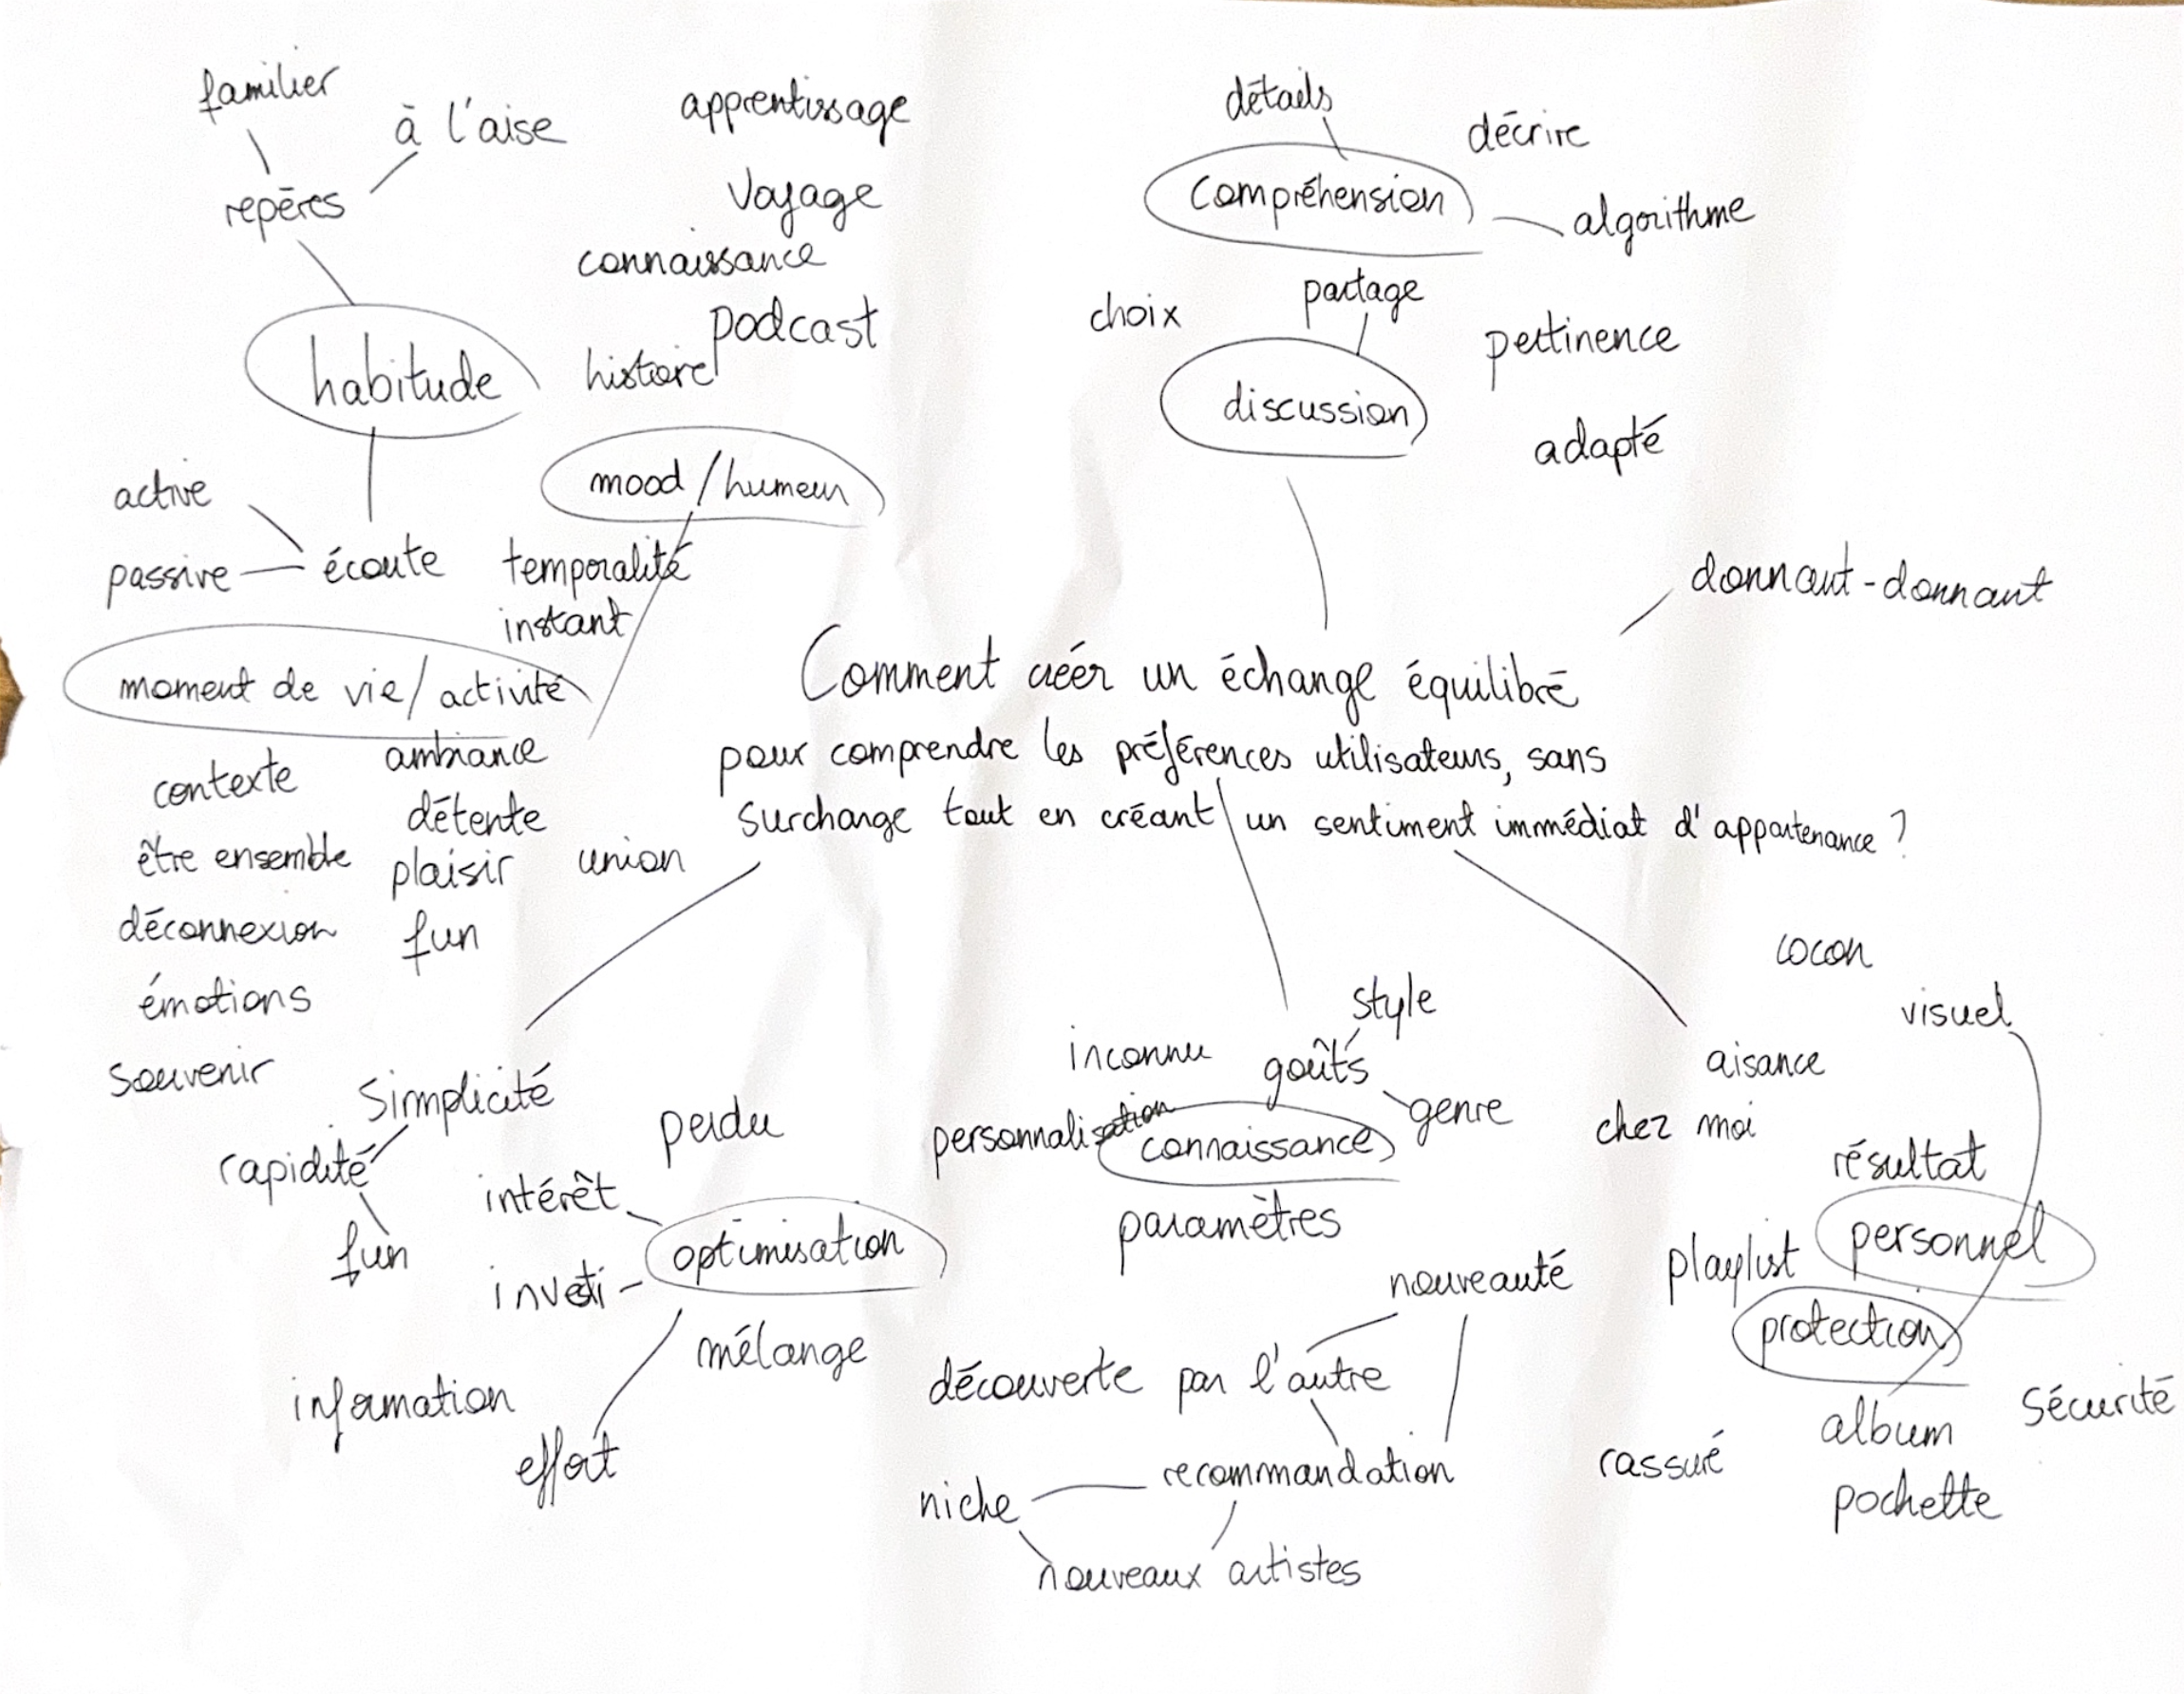 familier
à l'aise
repères
habitude
active
passive
écoute
apprentissage
voyage
connaissance
podcast
histoire
mood / humeur
temporalité
instant
moment de vie / activité
contexte
ambiance
détente
être ensemble
plaisir
union
déconnexion
fun
émotions
souvenir
détails
décrire
compréhension
algorithme
choix
partage
pertinence
discussion
adapté
donnant-donnant
Comment créer un échange équilibré
pour comprendre les préférences utilisateurs, sans
surcharge tout en créant un sentiment immédiat d'appartenance ?
simplicité
rapidité
fun
perdu
intérêt
optimisation
investi
mélange
information
effort
style
inconnu
goûts
genre
personnalisation
connaissance
paramètres
nouveauté
découverte par l'autre
recommandation
niche
nouveaux artistes
cocon
visuel
aisance
chez moi
résultat
personnel
playlist
protection
album
sécurité
rassuré
pochette